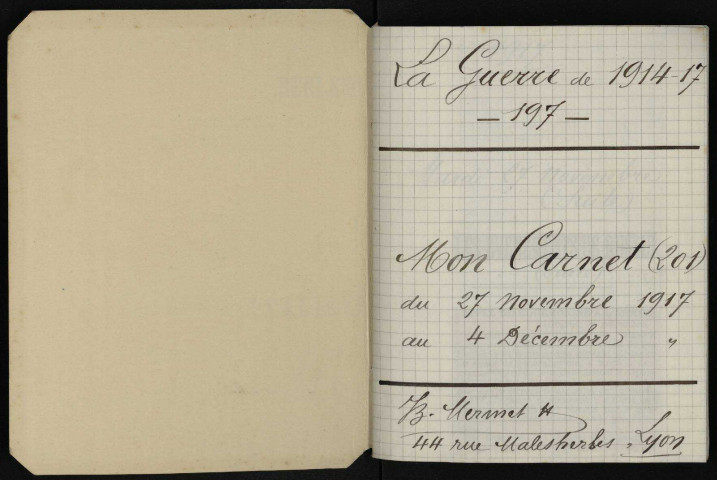 La Guerre de 1914-17
— 197 —
Mon Carnet (201)
du 27 Novembre 1917
au 4 Décembre "
B. Mermet
44 rue Malesherbes. Lyon